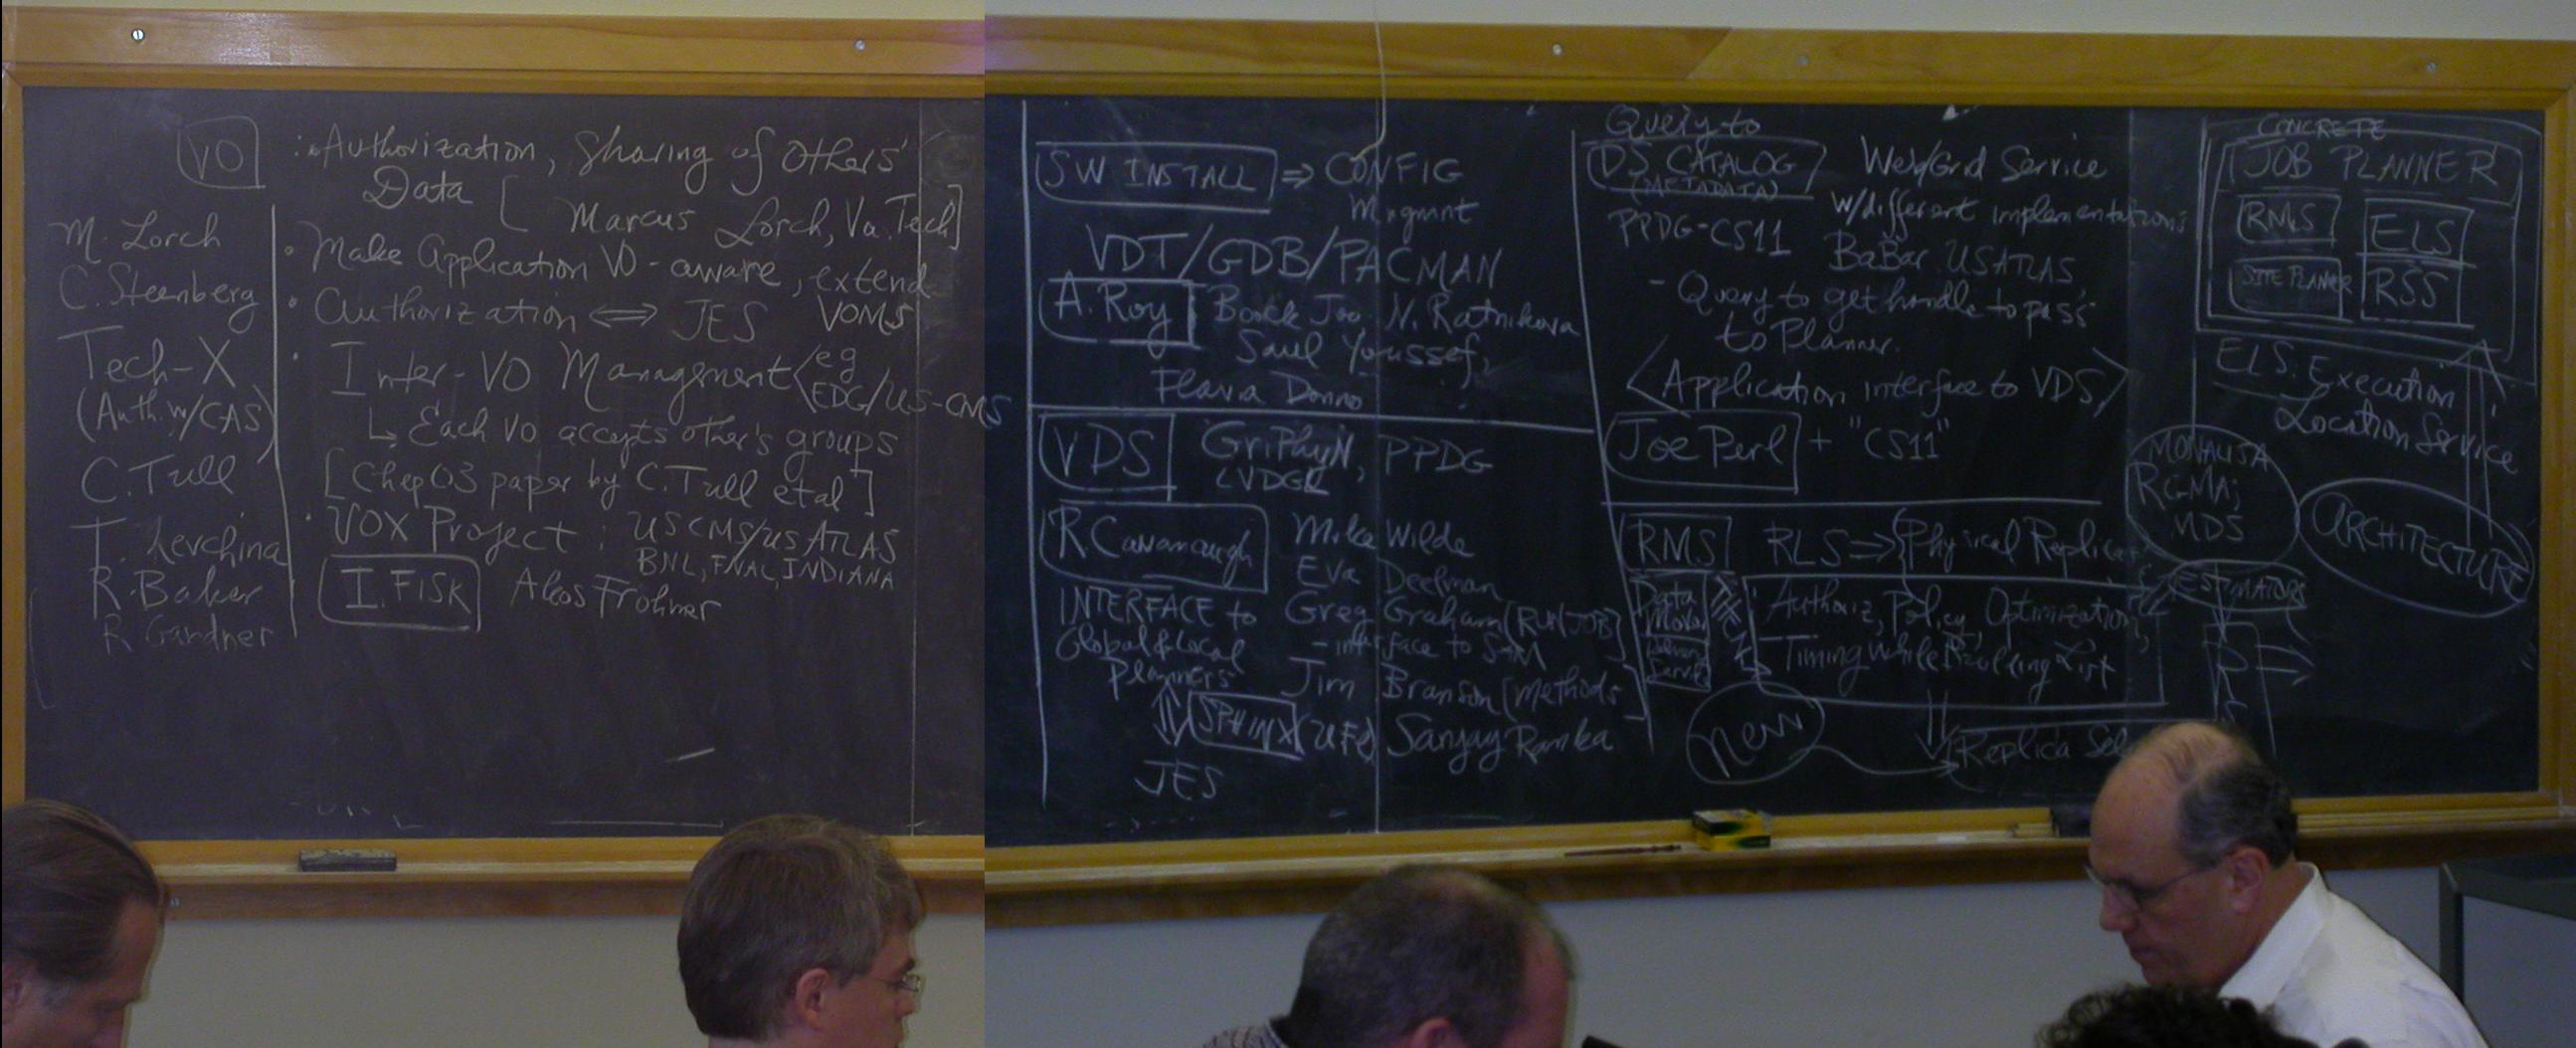 VO
: • Authorization, Sharing of Others'
Data [ Marcus Lorch, Va. Tech]
• Make Application VO-aware, extend
VOMS
• Authorization <=> JES
• Inter-VO Management < eg
EDG/US-CMS
↳ Each VO accepts other's groups
[Chep03 paper by C. Tull et al]
• VOX Project : US CMS/US ATLAS
BNL, FNAL, INDIANA
I. FISK Akos Frohner
M. Lorch
C. Steenberg
Tech-X
(Auth. w/CAS)
C. Tull
T. Levchina
R. Baker
R Gardner
SW INSTALL => CONFIG
Mrgmnt
VDT/GDB/PACMAN
A. Roy Bock Joo N. Ratnikova
Saul Youssef,
Flavia Donno
VDS GriPhyN, PPDG
iVDGL
R. Cavanaugh Mike Wilde
Eva Deelman
INTERFACE to Greg Graham (RUNJOB)
Global & Local - interface to
Planners Jim Branson [Methods
SPHINX (UFL) Sanjay Ranka
JES
Query to
DS CATALOG
(METADATA)
Web/Grid Service
w/different implementations
PPDG-CS11 BaBar USATLAS
- Query to get handle to pass
to Planner.
<Application interface to VDS>
Joe Perl + "CS11"
RMS RLS => {Physical Replicas
Data
Mover
Authoriz, Policy, Optimization,
- Timing while Building List
new
Replica
CONCRETE
JOB PLANNER
RMS ELS
SITE PLANER RSS
ELS: Execution
Location Service
MONALISA
RGMA;
MDS
ARCHITECTURE
ESTIMATORS